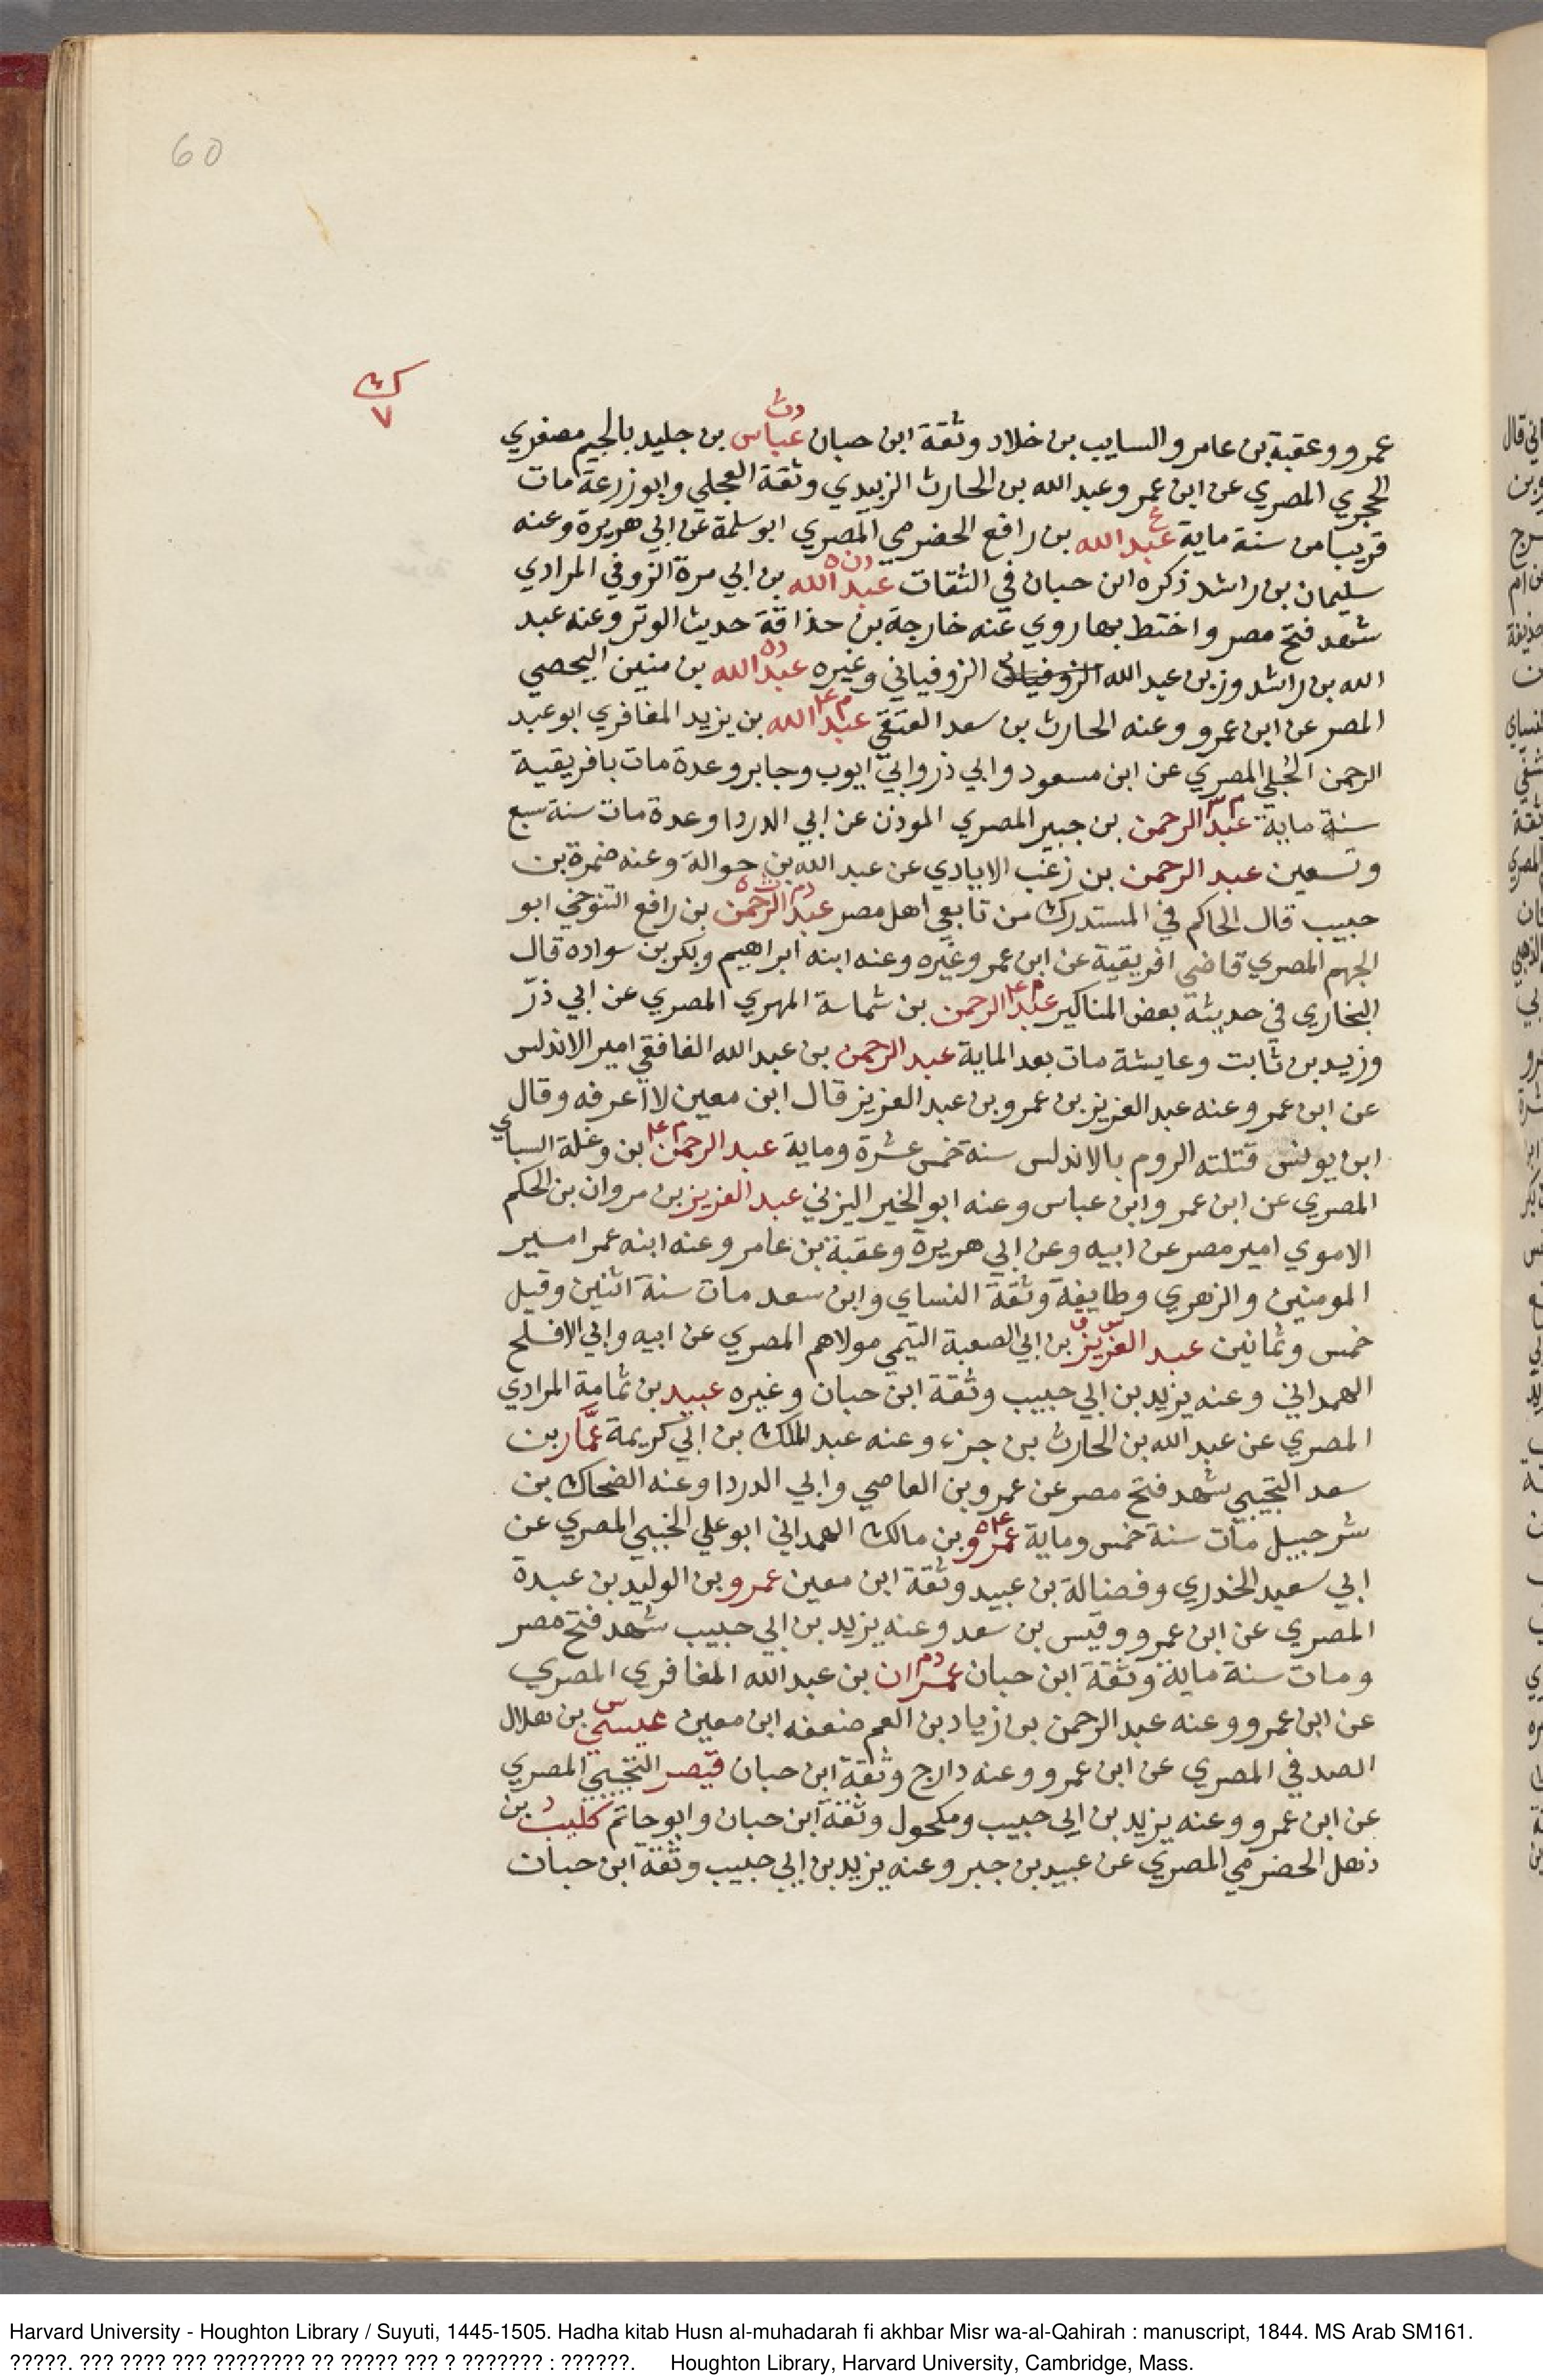 60
ك
٧
عمرو وعقبة بن عامر والسايب بن خلاد وثقة ابن حبان عباس بن جليد بالجيم مصغري
دت
الحجري المصري عن ابن عمر وعبد الله بن الحارث الزبيدي وثقة العجلي وابو زرعة مات
قريبا من سنة ماية عبد الله بن رافع الحضرمي المصري ابو سلمة عن ابي هريرة وعنه
ع
سليمان بن راشد ذكره ابن حبان في الثقات عبد الله بن ابي مرة الزوفي المرادي
شهد فتح مصر واختط بها روي عنه خارجة بن حذاقة حديث الوتر وعنه عبد
الله بن راشد وزبن عبد الله الزوفياني الزوفياني وغيره عبد الله بن منين اليحصبي
ده
المصر عن ابن عمرو وعنه الحارث بن سعد العتقي عبد الله بن يزيد المغافري ابو عبد
م عا
الرحمن الحبلي المصري عن ابن مسعود وابي ذر وابي ايوب وجابر وعدة مات بافريقية
سنة ماية عبد الرحمن بن جبير المصري الموذن عن ابي الدردا وعدة مات سنة سبع
وتسعين عبد الرحمن بن زغب الايادي عن عبد الله بن حوالة وعنه ضمرة بن
حبيب قال الحاكم في المستدرك من تابعي اهل مصر عبد الرحمن بن رافع التنوخي ابو
الجهم المصري قاضي افريقية عن ابن عمر وغيره وعنه ابنه ابراهيم وبكر بن سواده قال
البخاري في حديثه بعض المناكير عبد الرحمن بن شماسة المهري المصري عن ابي ذر
م عا
وزيد بن ثابت وعايشة مات بعد الماية عبد الرحمن بن عبد الله الغافقي امير الاندلس
عن ابن عمر وعنه عبد العزيز بن عمرو بن عبد العزيز قال ابن معين لا اعرفه وقال
ابن يونس قتلته الروم بالاندلس سنة خمس عشرة وماية عبد الرحمن بن وعلة السباي
م عا
المصري عن ابن عمر وابن عباس وعنه ابو الخير اليزني عبد العزيز بن مروان بن الحكم
الاموي امير مصر عن ابيه وعن ابي هريرة وعقبة بن عامر وعنه ابنه عمر امير
المومنين والزهري وطايفة وثقة النساي وابن سعد مات سنة اثنين وقيل
خمس وثمانين عبد العزيز بن ابي الصعبة التيمي مولاهم المصري عن ابيه وابي الافلح
س ق
الهمداني وعنه يزيد بن ابي حبيب وثقة ابن حبان وغيره عبيد بن ثمامة المرادي
المصري عن عبد الله بن الحارث بن جزء وعنه عبد الملك بن ابي كريمة عمار بن
سعد التجيبي شهد فتح مصر عن عمرو بن العاصي وابي الدردا وعنه الضحاك بن
شرحبيل مات سنة خمس وماية عمرو بن مالك الهمداني ابو علي الجنبي المصري عن
عه
ابي سعيد الخدري وفضالة بن عبيد وثقة ابن معين عمرو بن الوليد بن عبدة
المصري عن ابن عمرو وقيس بن سعد وعنه يزيد بن ابي حبيب شهد فتح مصر
ومات سنة ماية وثقة ابن حبان عمران بن عبد الله المغافري المصري
دم
عن ابن عمرو وعنه عبد الرحمن بن زياد بن انعم ضعفه ابن معين عيسي بن هلال
س
الصدفي المصري عن ابن عمرو وعنه دارج وثقة ابن حبان قيصر التجيبي المصري
عن ابن عمرو وعنه يزيد بن ابي حبيب ومكحول وثقة ابن حبان وابو حاتم كليب بن
د
ذهل الحضرمي المصري عن عبيد بن جبر وعنه يزيد بن ابي حبيب وثقة ابن حبان
Harvard University - Houghton Library / Suyuti, 1445-1505. Hadha kitab Husn al-muhadarah fi akhbar Misr wa-al-Qahirah : manuscript, 1844. MS Arab SM161.
?????. ??? ???? ??? ???????? ?? ????? ??? ? ??????? : ??????. Houghton Library, Harvard University, Cambridge, Mass.